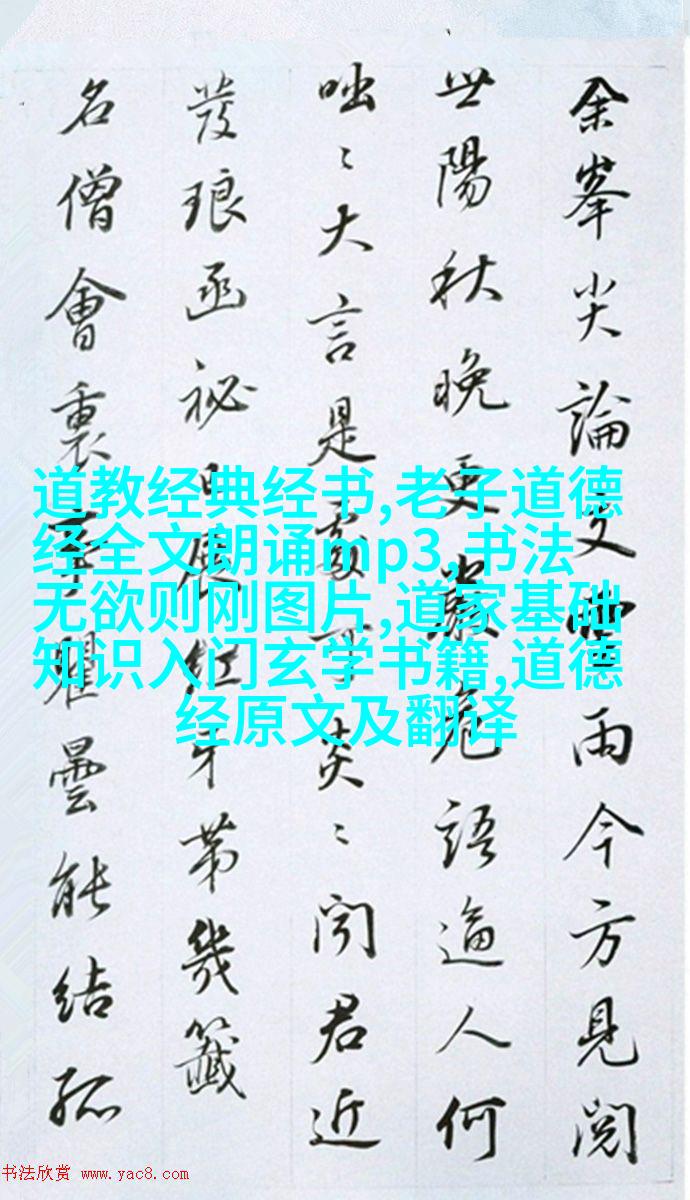 余峯尖論文雨今方見閱
世陽秋晚更嚴危語逼人何
咄〻大言是處可炎〻聞君近
發琅函祕日展紅牙第幾籤
名僧會裏瞿曇能結孤
道教经典经书,老子道德
经全文朗诵mp3,书法
无欲则刚图片,道家基础
知识入门玄学书籍,道德
经原文及翻译
书法欣赏 www.yac8.com